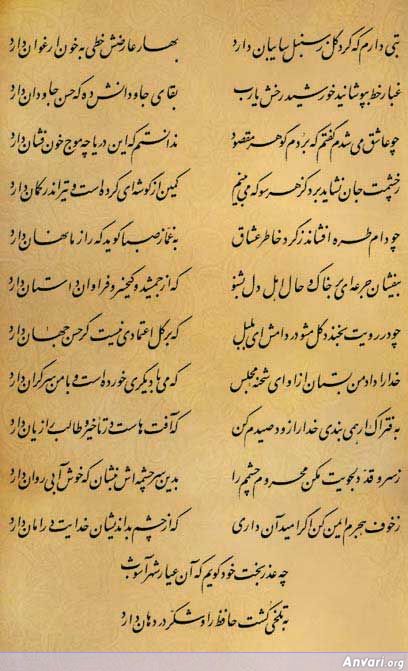 بتی دارم که گرد گل ز سنبل سایبان دارد بهار عارضش خطی به خون ارغوان دارد
غبار خط بپوشانید خورشید رخش یارب بقای جاودانش ده که حسن جاودان دارد
چو عاشق می‌شدم گفتم که بردم گوهر مقصود ندانستم که این دریا چه موج خون فشان دارد
ز چشمت جان نشاید برد کز هر سو که می‌بینم کمین از گوشه‌ای کرده‌است و تیر اندر کمان دارد
چو دام طره افشاند ز گرد خاطر عشاق به غماز صبا گوید که راز ما نهان دارد
بیفشان جرعه‌ای بر خاک و حال اهل دل بشنو که از جمشید و کیخسرو فراوان داستان دارد
چو در رویت بخندد گل مشو در دامش ای بلبل که بر گل اعتمادی نیست گر حسن جهان دارد
خدا را داد من بستان از او ای شحنه مجلس که می با دیگری خورده‌است و با من سر گران دارد
به فتراک ار همی بندی خدا را زود صیدم کن که آفت‌هاست در تأخیر و طالب را زیان دارد
ز سرو قد دلجویت مکن محروم چشمم را بدین سرچشمه‌اش بنشان که خوش آبی روان دارد
ز خوف هجرم ایمن کن اگر امید آن داری که از چشم بداندیشان خدایت در امان دارد
چه عذر بخت خود گویم که آن عیار شهرآشوب
به تلخی کشت حافظ را و شکر در دهان دارد
Anvari.org